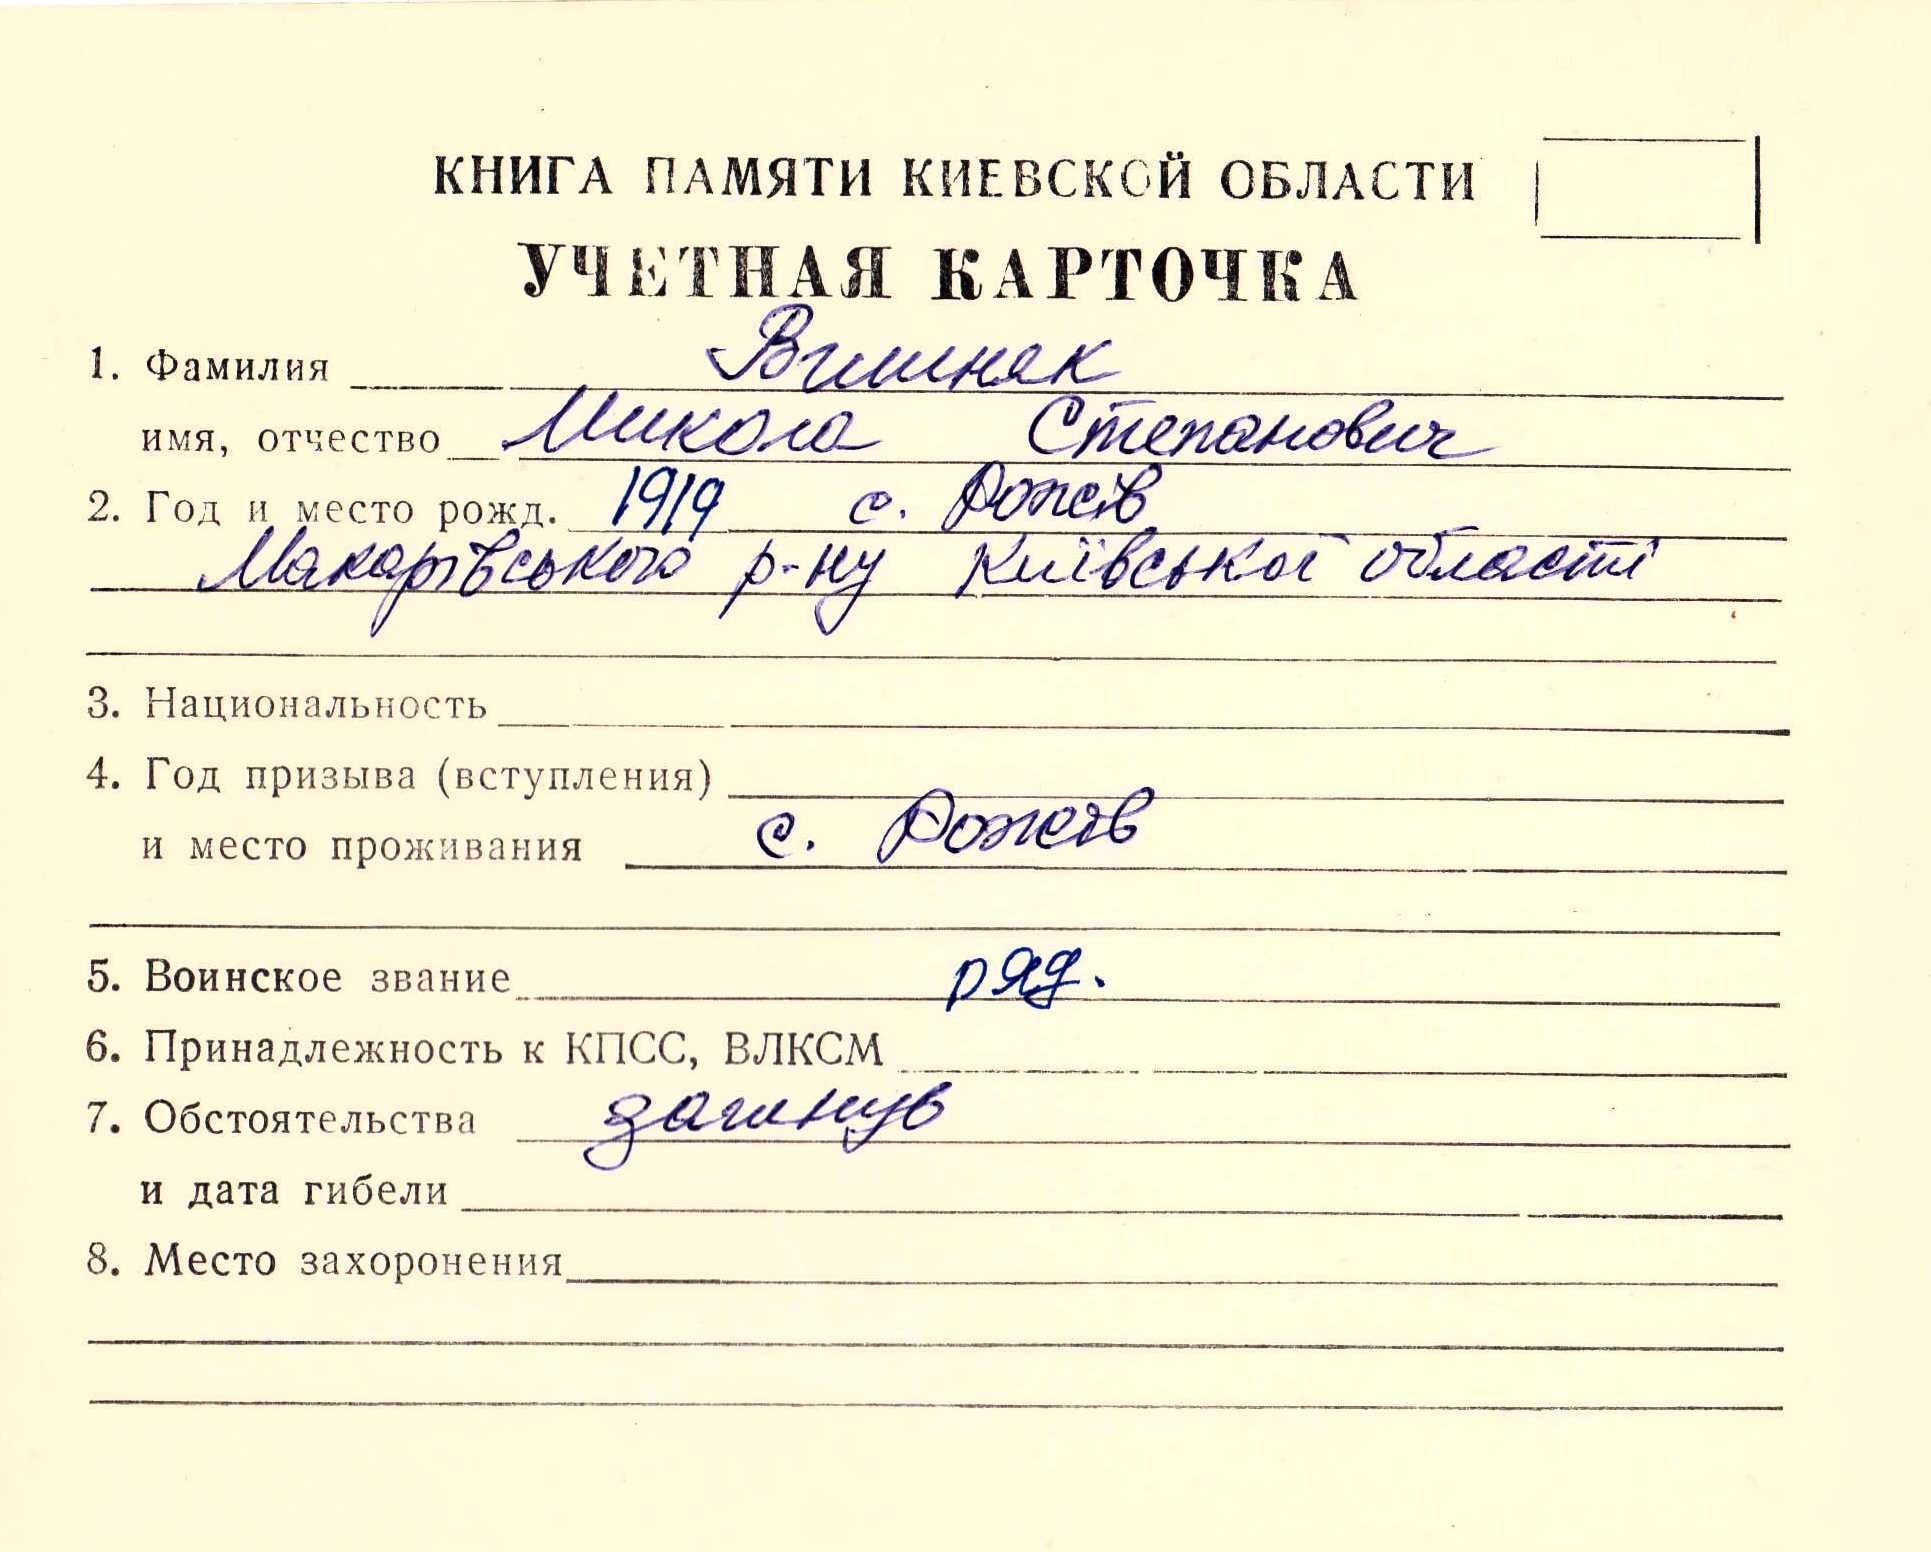 КНИГА ПАМЯТИ КИЕВСКОЙ ОБЛАСТИ
УЧЕТНАЯ КАРТОЧКА
1. Фамилия Вишняк
имя, отчество Микола Степанович
2. Год и место рожд. 1919 с. Рожів
Макарівського р-ну Київської області
3. Национальность
4. Год призыва (вступления)
и место проживания с. Рожів
5. Воинское звание ряд.
6. Принадлежность к КПСС, ВЛКСМ
7. Обстоятельства загинув
и дата гибели
8. Место захоронения